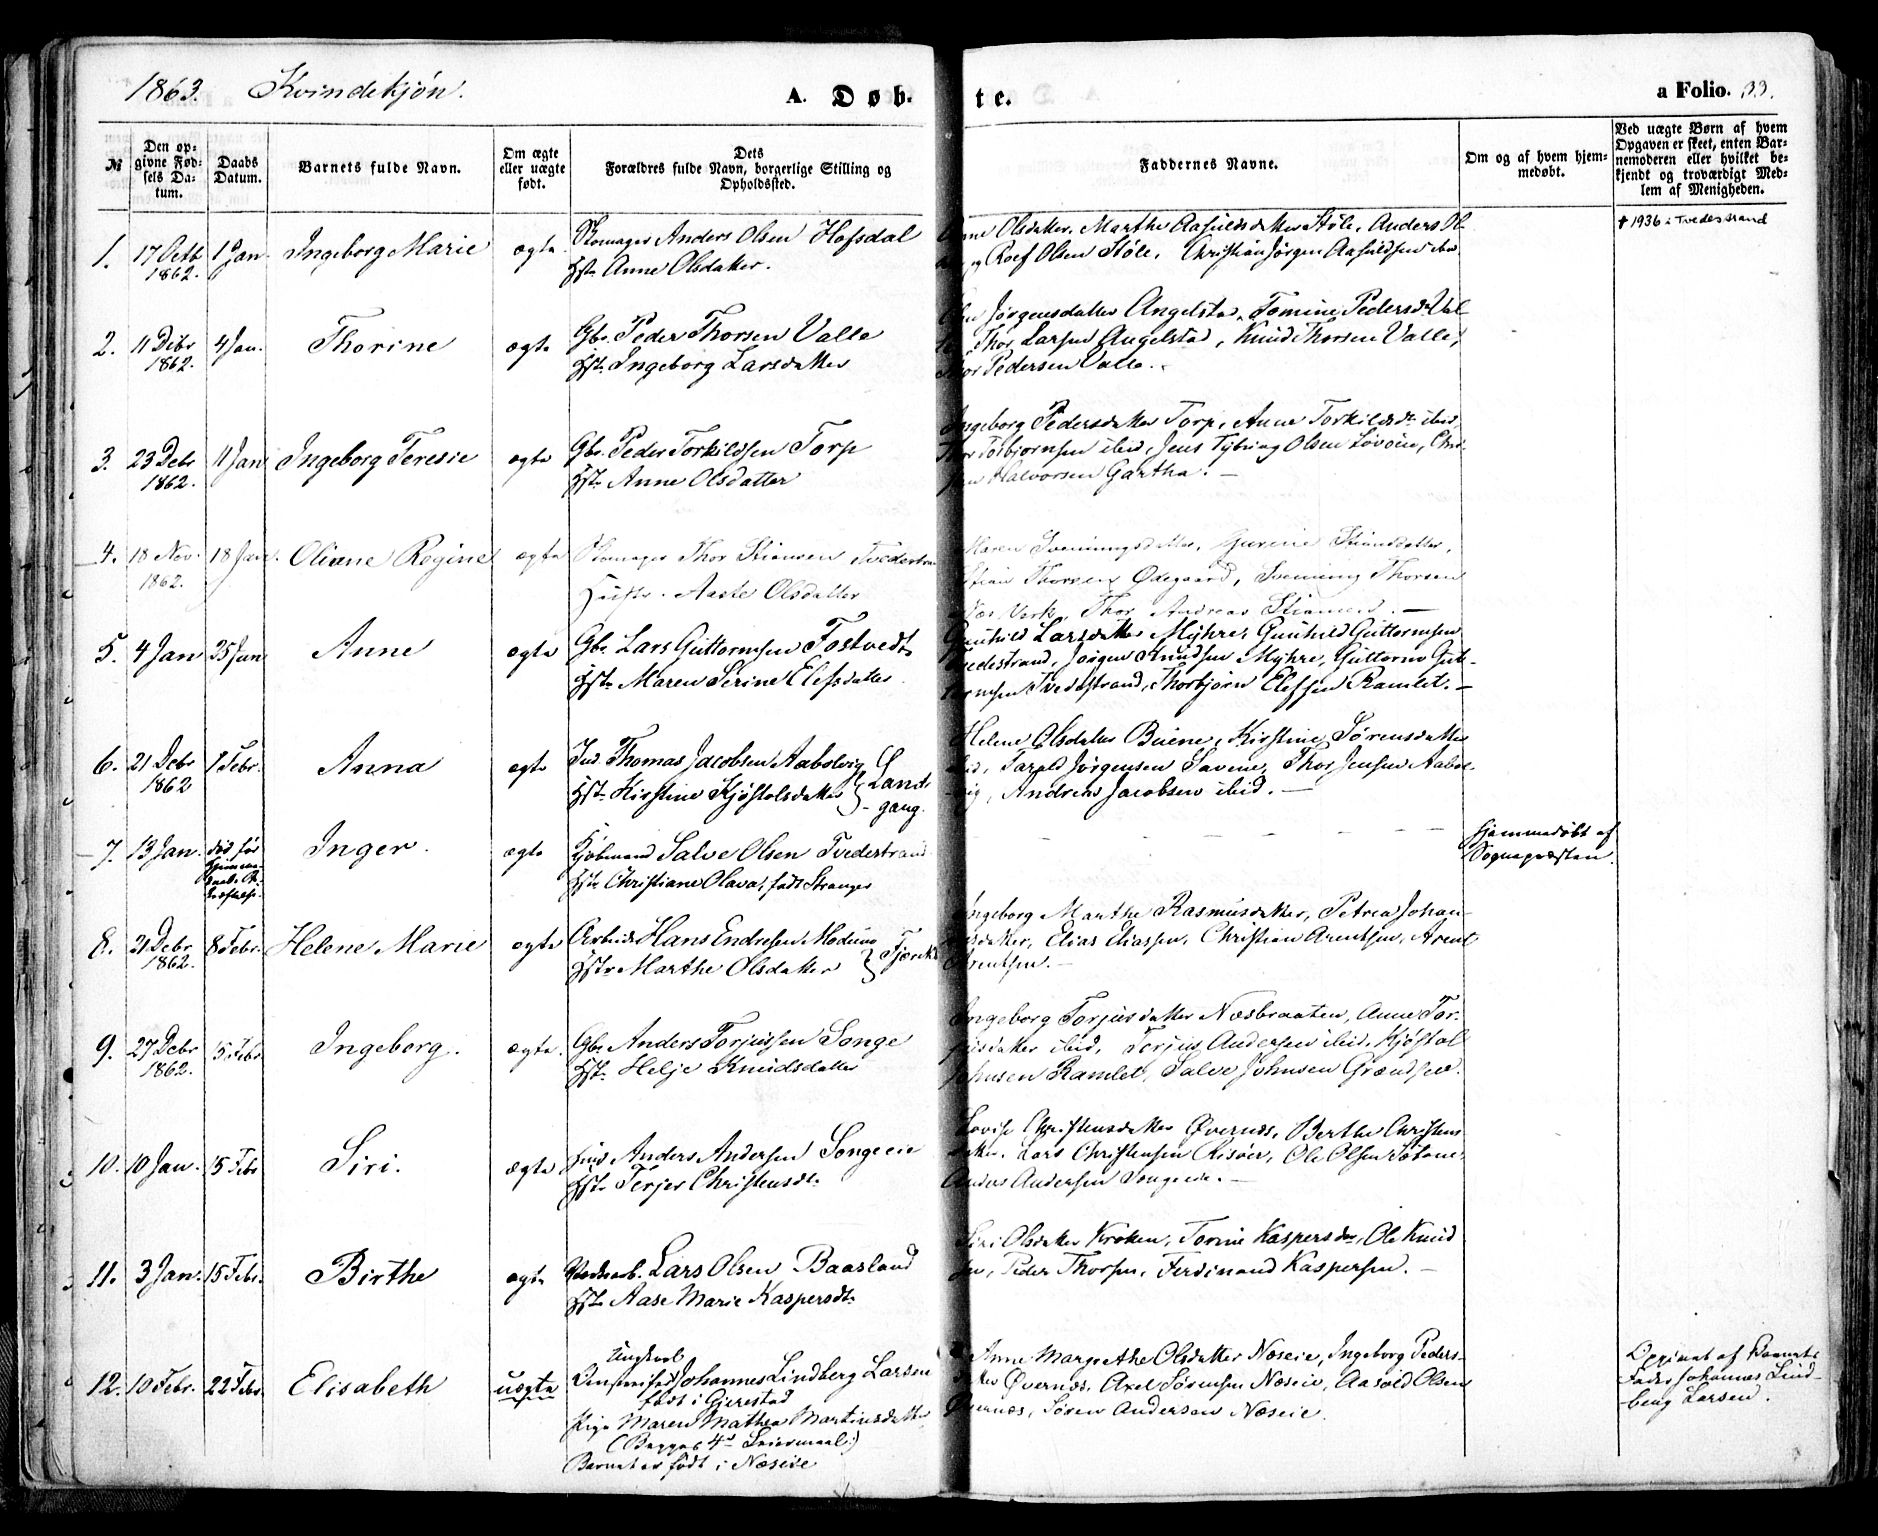 1863. Kvindekjön.
A. Døb-
te.
a Folio. 33.
№
Den op-
givne Fød-
sels Da-
tum.
Daabs
Datum.
Barnets fulde Navn.
Om ægte
eller uægte
født.
Dets
Forældres fulde Navn, borgerlige Stilling og
Opholdssted.
Faddernes Navne.
Om og af hvem hjem-
medøbt.
Ved uægte Børn af hvem
Opgaven er skeet, enten Bar-
nemoderen eller hvilket be-
kjendt og troværdigt Med-
lem af Menigheden.
1. 17 Octb 1 Jan Ingeborg Marie ægte Skomager Anders Olsen Hofsdal
1862. Hst. Anne Olsdatter.
Olsdatter. Marthe Støle, Anders
Olsen Støle, Christian Jörgen
✝ 1936 i Tvedestrand
2. 11 Debr 4 Jan. Thorine ægte Gbr. Peder Thorsen Valle
1862. Hst. Ingeborg Larsdatter
Jörgensdatter Angelstad, Tomine Pedersd. Val-
Thor Larsen Angelstad, Knud Thorsen Valle,
Pedersen Valle.
3. 23 Debr 11 Jan Ingeborg Teresie ægte Gbr. Peder Torkildsen Torp
1862. Hst. Anne Olsdatter
Ingeborg Pedersdatter Torp, Anne Torkildsdt. ibid,
Torbjörnsen ibid, Jens Olsen
Halvorsen Gartha. —
4. 18 Nov. 18 Jan. Oliane Regine ægte Skomager Thor Stiansen Tvedestrand
1862. Hustr. Aaste Olsdatter
Maren Sveningsdatter, Gurine Stiansdatter,
Stian Thorsen Ødegaard, Svenning Thorsen
Næs Værk, Thor Andreas Stiansen. —
5. 4 Jan 25 Jan Anne ægte Gbr. Lars Guttormsen Fostvedt
Hst. Maren Serine Elefsdatter
Gunhild Larsdatter Myhre, Gunhild Guttormsen
Tvedestrand, Jörgen Knudsen Myhre, Guttorm Gut-
tormsen Tvedestrand, Thorbjörn Elefsen Ramlet. —
6. 21 Debr 1 Febr. Anna ægte Ind. Thomas Jacobsen Aabolvig } Lands-
1862 Hst. Kirstine Kjöstolsdatter gang.
Helene Olsdatter Buene, Kirstine Sörensdatter
ibid, Tarald Jörgensen Savene, Thor Jensen Aabol-
vig, Andreas Jacobsen ibid. —
7. 13 Jan. död för Inger. ægte Kjöbmand Salve Olsen Tvedestrand
Hst. Christiane Olava, födt Stranger
Hjemmedöbt af
Sognepræsten.
8. 21 Debr 8 Febr. Helene Marie ægte Arbeid. Hans Endresen Modum }
1862. Hstr. Marthe Olsdatter
Ingeborg Marthe Rasmusdatter, Petrea Johan-
nesdatter, Elias Eliassen, Christian Arentsen, Arent
Arentsen. —
9. 27 Debr 15 Febr Ingeborg. ægte. Gbr. Anders Torjussen Songe
1862. Hst. Helje Knudsdatter
Ingeborg Torjusdatter Næsbraaten, Anne Tor-
jusdatter ibid, Torjus Andersen ibid, Kjöstol
Johnsen Ramlet, Salve Johnsen Grændsen.
10. 10 Jan. 15 Febr Siri. ægte Ind. Anders Andersen Songeeie
Hst. Terjer Christensdt.
Lovise Christensdatter Øvernæs, Berthe Christens-
datter. Lars Christensen Risöer, Ole Olsen
Anders Andersen Songeeie. —
11. 3 Jan. 15 Febr. Birthe ægte Lars Olsen Baasland
Hst. Aase Marie Kaspersdt.
Siri Olsdatter Kroken, Torine Kaspersdr, Ole Knud-
sen, Peder Thorsen, Ferdinand Kaspersen. —
12. 10 Febr. 22 Febr. Elisabeth uægte Ungkarl
Johannes Lindberg Larsen
födt i Gjerestad
Pige Maren Mathea Martinsdatter
(Begges 4de Leiermaal)
Barnet er födt i Næseie
Anne Margrethe Olsdatter Næseie, Ingeborg Peders-
datter Øvernæs, Axel Sörensen Næseie, Aasold Olsen
Øvernæs, Sören Andersen Næseie.
Opgivet af Barnets
Fader Johannes Lind-
berg Larsen.